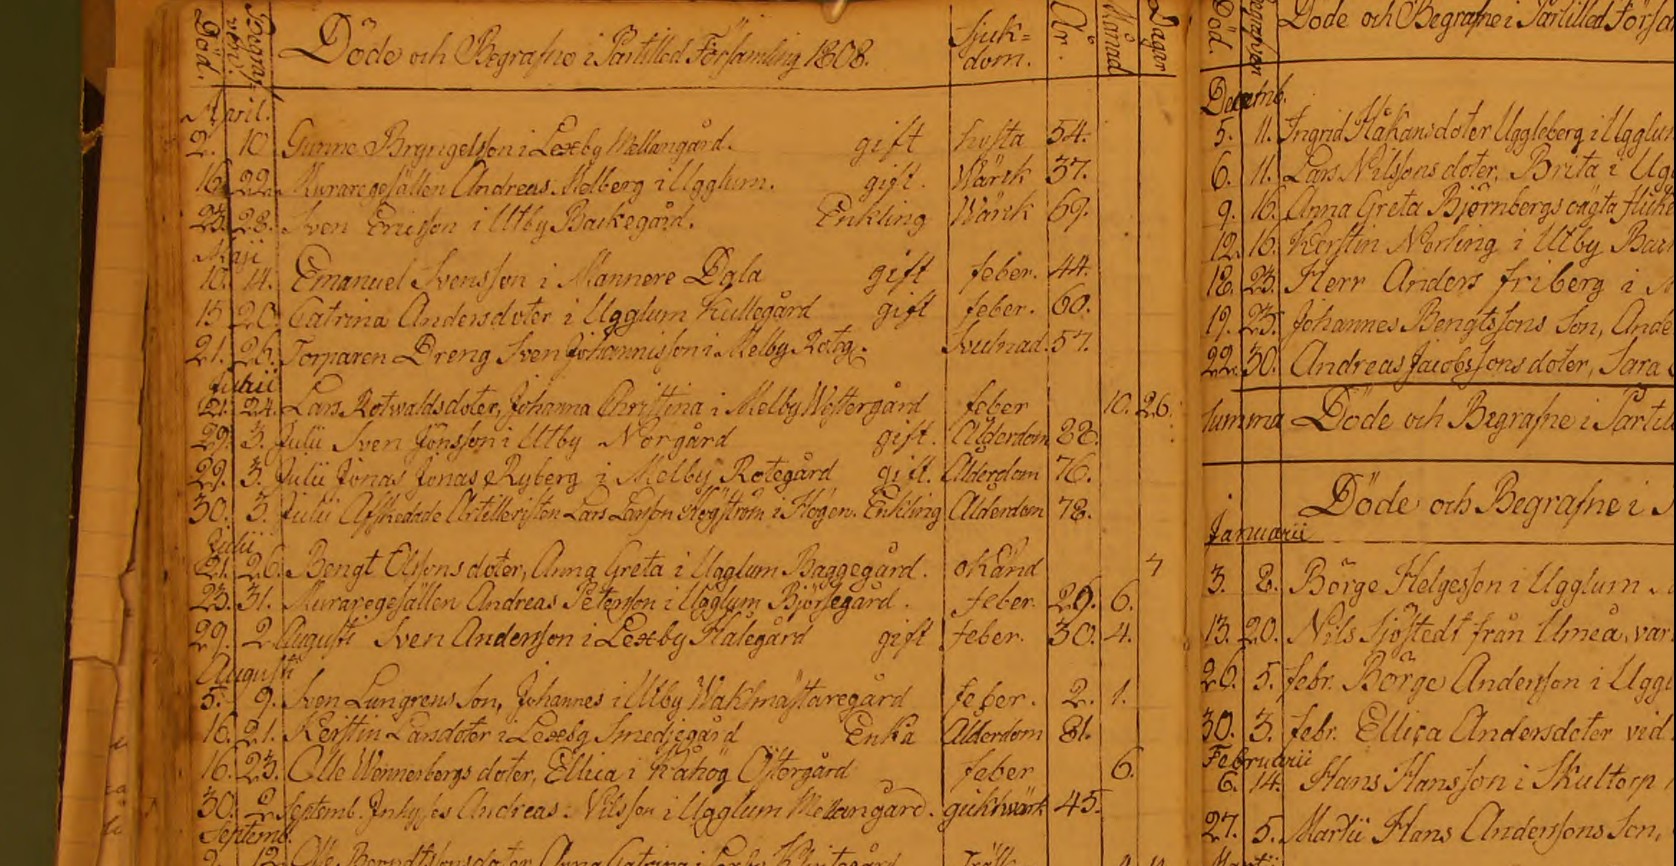 Död.
Begrafven.
Döde och Begrafne i Partilled Församling 1808.
Sjuk=
dom.
År.
Månad
Dagar
April.
2. 10. Gunne Bryngelsson i Lexby Mellangård. gift hosta 54.
16. 22. Muraregesällen Andreas Melberg i Ugglum. gift. Wärk 37.
23. 28. Sven Ericsson i Utby Backegård. Enkling Wärk 69.
Maji
10. 14. Emanuel Svensson i Mannere Dala gift feber. 44.
15 20. Catrina Andersdoter i Ugglum Kullegård gift feber. 60.
21. 26. Torparen Dreng Sven Johannisson i Melby Roteg. Svulnad. 57.
Junii
21. 24. Lars Rotwaldsdoter, Johanna Christina i Melby Westergård feber 10. 26.
29. 3. Julii Sven Jönsson i Utby Norgård gift. Ålderdom 88.
29. 3. Julii Jonas Jonas Ryberg i Melby Rotegård gift. Ålderdom 76.
30. 3. Julii Afskedade Artilleristen Lars Larsson Högström i Högen. Enkling Ålderdom 78.
Julii
21. 26. Bengt Olssons doter, Anna Greta i Ugglum Baggegård. okänd 4
23. 31. Muraregesällen Andreas Petersson i Ugglum Björsegård. feber. 26. 6.
29. 2. Augusti Sven Andersson i Lexby Hålegård gift feber. 30. 4.
Augusti
5. 9. Sven Lungrens Son, Johannes i Utby Wakhmästaregård feber. 2. 1.
16. 21. Kerstin Larsdoter i Lexby Smedjegård Enka Ålderdom 81.
16. 23. Olle Wennerbergs doter, Ellica i Kåhög Östergård feber 6.
30. 2. Septemb. Inhyses Andreas Nilsson i Ugglum Mellangård. gikhwärk 45.
Septemb.
Olle Berndtssons doter Anna Catrina i
Död.
Begrafven
Döde och Begrafne i Partilled Församl
Decemb.
5. 11. Ingrid Håkansdoter Uggleberg i Ugglum
6. 11. Lars Nilssons doter, Brita i Ug
9. 16. Anna Greta Björnbergs oägta flicka
12. 16. Kerstin Norling i Utby Bac
18. 23. Herr Anders Friberg i
19. 23. Johannes Bengtssons Son, Ande
22. 30. Andreas Jacobssons doter, Sara
Summa Döde och Begrafne i Partill
Döde och Begrafne i
Januarii
3. 8. Börge Helgesson i Ugglum
13. 20. Nils Sjöstedt från Umeå, var
26. 5. febr. Börge Andersson i Uggl
30. 3. febr. Ellica Andersdoter ved
Februarii
6. 14. Hans Hansson i Skultorp
27. 5. Martii Hans Anderssons Son,
Martii